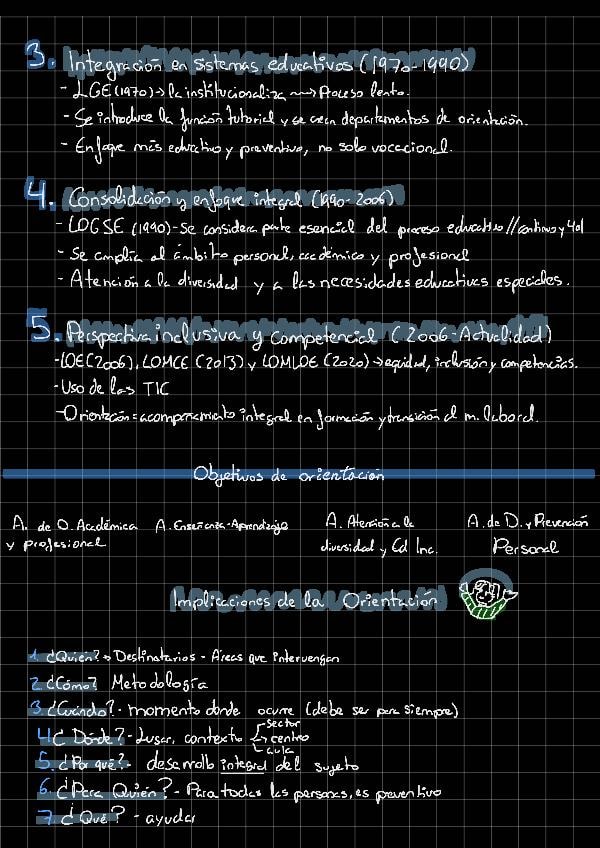 3. Integración en sistemas educativos (1970-1990)
- LGE (1970) → la institucionaliza ⟿ Proceso lento.
- Se introduce la función tutorial y se crean departamentos de orientación.
- Enfoque más educativo y preventivo, no solo vocacional.
4. Consolidación y enfoque integral (1990-2006)
- LOGSE (1990) - Se considera parte esencial del proceso educativo // continuo y
- Se amplía al ámbito personal, académico y profesional
- Atención a la diversidad y a las necesidades educativas especiales.
5. Perspectiva inclusiva y Competencial (2006-Actualidad)
- LOE (2006), LOMCE (2013) y LOMLOE (2020) → equidad, inclusión y competencias.
- Uso de las TIC
- Orientación = acompañamiento integral en formación y transición al m. laboral.
Objetivos de orientación
A. de O. Académica y profesional
A. Enseñanza-Aprendizaje
A. Atención a la diversidad y Ed Inc.
A. de D. y Prevención Personal
Implicaciones de la Orientación
1. ¿Quién? → Destinatarios - Áreas que intervengan
2. ¿Cómo? Metodología
3. ¿Cuándo? - momento donde ocurre (debe ser para siempre)
4. ¿Dónde? - Lugar, contexto sector centro aula
5. ¿Por qué? - desarrollo integral del sujeto
6. ¿Para Quién? - Para todas las personas, es preventivo
7. ¿Qué? - ayudar